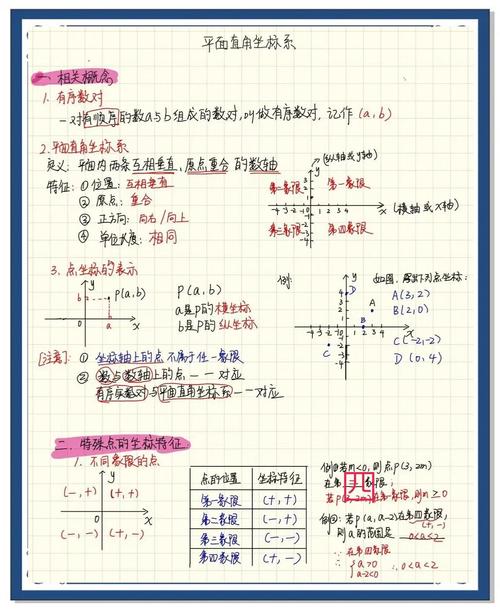 平面直角坐标系
一、相关概念
1. 有序数对
一对有顺序的数a与b组成的数对,叫做有序数对,记作(a,b)
2.平面直角坐标系
定义:平面内两条互相垂直,原点重合的数轴
特征:①位置:互相垂直
②原点:重合
③正方向:向右/向上
④单位长度:相同
(纵轴或y轴)
y
第二象限 第一象限
-4 -3 -2 -1 0 1 2 3 x (横轴或x轴)
第三象限 第四象限
3. 点坐标的表示
y
b P(a,b)
a x
P(a,b)
a是P的横坐标
b是P的纵坐标
例:
y
D
A
B
C
x
如图,写出下列点坐标:
A(3,2)
B(2,0)
C(-2,-2)
D(0,4)
[注意]:①坐标轴上的点不属于任一象限
②数与数轴上的点一一对应
有序实数对与平面直角坐标系一一对应
二、特殊点的坐标特征
1. 不同象限的点
y
(-,+) (+,+)
0 x
(-,-) (+,-)
点的位置 坐标特征
第一象限 (+,+)
第二象限 (-,+)
第三象限 (-,-)
第四象限 (+,-)
例①若m<0,则点P(3,2m)
在第 四 象限;
若P(3,2m)在第一象限,则m≥0
例②:若P(a,a-2)在第四象限,
(+,-)
则a的范围是 0<a<2
∵在第四象限
∴ a>0
a-2<0
∴0<a<2